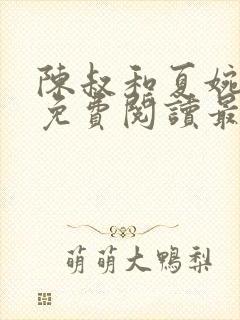 陳叔和夏婉
免費閱讀最
萌萌大鴨梨